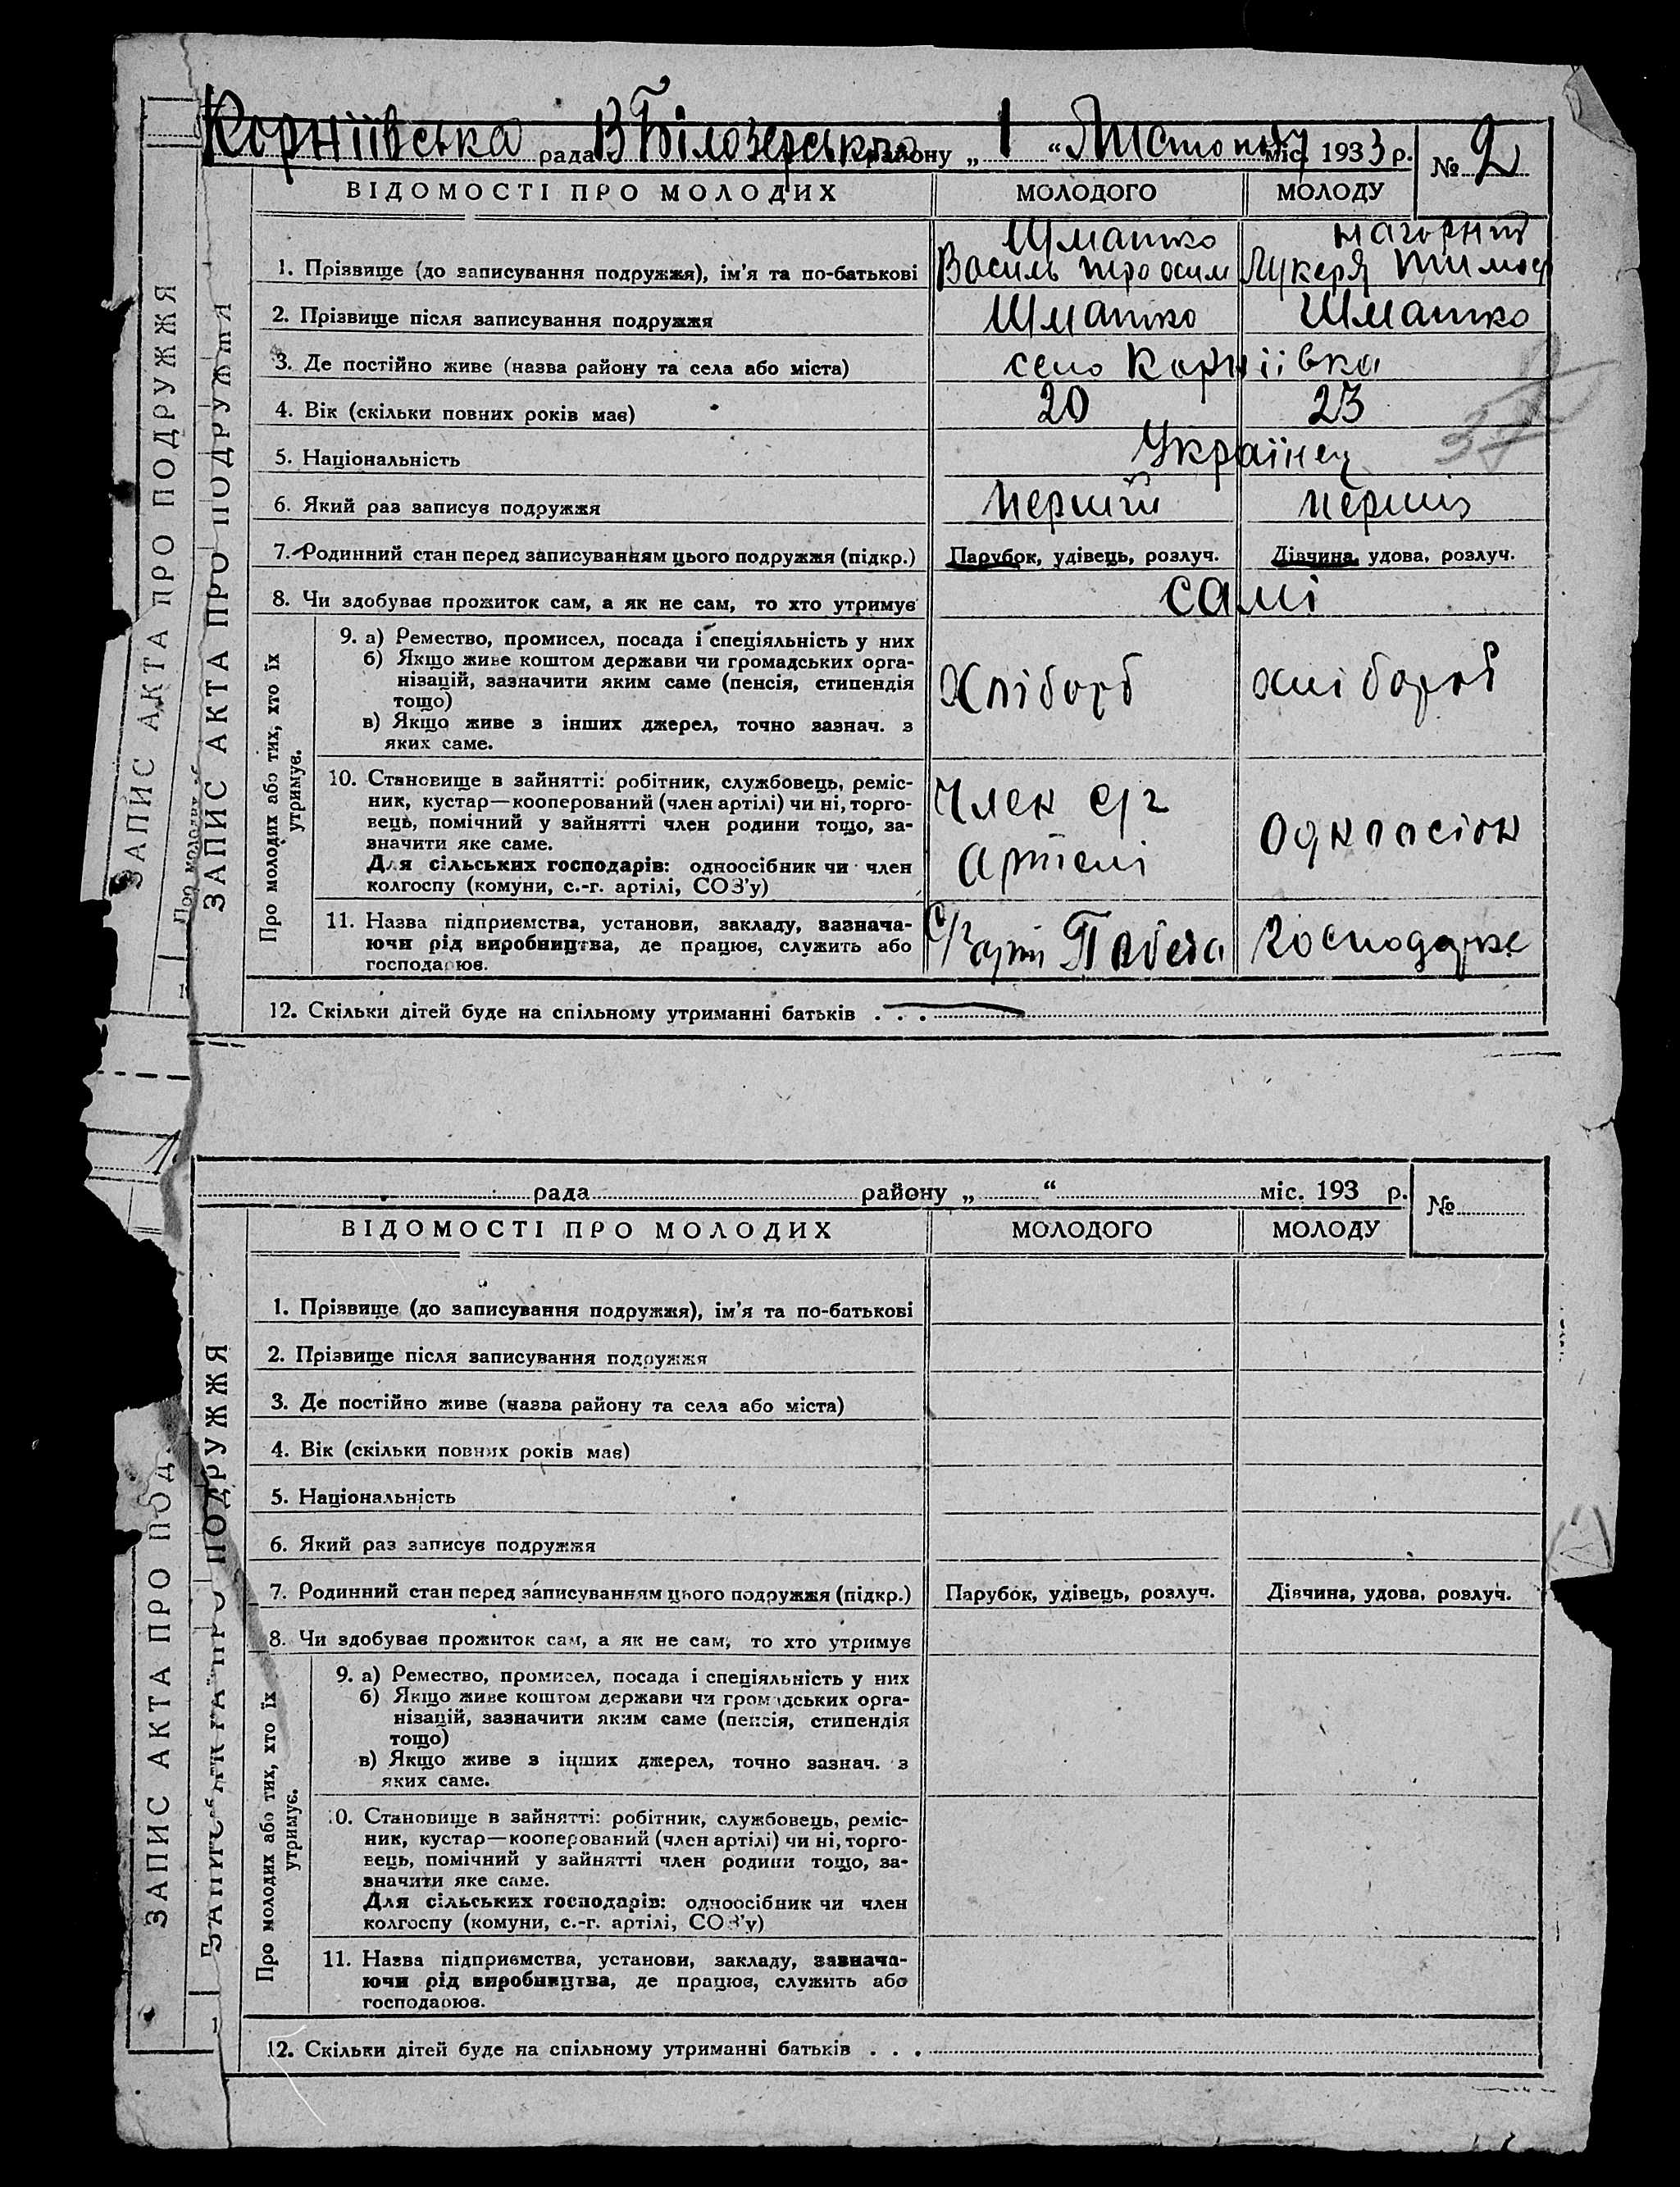 Корніївська рада В Білозерського району „ 1 “ Листопаду міс. 1933 р. № 2
ВІДОМОСТІ ПРО МОЛОДИХ МОЛОДОГО МОЛОДУ
Шматко Нагорня
1. Прізвище (до записування подружжя), ім'я та по-батькові Василь Лукеря Тимоф
2. Прізвище після записування подружжя Шматко Шматко
3. Де постійно живе (назва району та села або міста) село Корніївка
4. Вік (скільки повних років має) 20 23
5. Національність Українец
6. Який раз записує подружжя перший перший
7. Родинний стан перед записуванням цього подружжя (підкр.) Парубок, удівець, розлуч. Дівчина, удова, розлуч.
8. Чи здобуває прожиток сам, а як не сам, то хто утримує самі
9. а) Ремество, промисел, посада і спеціяльність у них
б) Якщо живе коштом держави чи громадських орга-
нізацій, зазначити яким саме (пенсія, стипендія Хліборб хлібороб
тощо)
в) Якщо живе з інших джерел, точно зазнач. з
яких саме.
10. Становище в зайнятті: робітник, службовець, реміс-
ник, кустар—кооперований (член артілі) чи ні, торго- Член с/г
вець, помічний у зайнятті член родини тощо, за-
значити яке саме. одноосібн
Для сільських господарів: одноосібник чи член артелі
колгоспу (комуни, с.-г. артілі, СОЗ'у)
11. Назва підприємства, установи, закладу, зазнача-
ючи рід виробництва, де працює, служить або С/г арт Побєда господарює
господарює.
12. Скільки дітей буде на спільному утриманні батьків . . .
Про молодих або тих, хто їх
утримує.
ЗАПИС АКТА ПРО ПОДРУЖЖЯ
ЗАПИС АКТА ПРО ПОДРУЖЖЯ
рада району „ “ міс. 193 р. №
ВІДОМОСТІ ПРО МОЛОДИХ МОЛОДОГО МОЛОДУ
1. Прізвище (до записування подружжя), ім'я та по-батькові
2. Прізвище після записування подружжя
3. Де постійно живе (назва району та села або міста)
4. Вік (скільки повних років має)
5. Національність
6. Який раз записує подружжя
7. Родинний стан перед записуванням цього подружжя (підкр.) Парубок, удівець, розлуч. Дівчина, удова, розлуч.
8. Чи здобуває прожиток сам, а як не сам, то хто утримує
9. а) Ремество, промисел, посада і спеціяльність у них
б) Якщо живе коштом держави чи громадських орга-
нізацій, зазначити яким саме (пенсія, стипендія
тощо)
в) Якщо живе з інших джерел, точно зазнач. з
яких саме.
10. Становище в зайнятті: робітник, службовець, реміс-
ник, кустар—кооперований (член артілі) чи ні, торго-
вець, помічний у зайнятті член родини тощо, за-
значити яке саме.
Для сільських господарів: одноосібник чи член
колгоспу (комуни, с.-г. артілі, СОЗ'у)
11. Назва підприємства, установи, закладу, зазнача-
ючи рід виробництва, де працює, служить або
господарює.
12. Скільки дітей буде на спільному утриманні батьків . . .
Про молодих або тих, хто їх
утримує.
ЗАПИС АКТА ПРО ПОДРУЖЖЯ
ЗАПИС АКТА ПРО ПОД